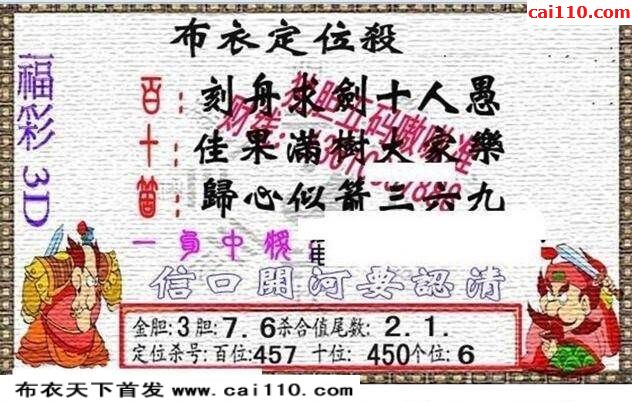 cai110.com
布衣定位殺
福彩 3D
百：刻舟求劍十人愚
十：佳果滿樹大家樂
箇：歸心似箭三六九
信口開河要認清
金胆:3胆:7.6杀合值尾数: 2.1.
定位杀号:百位:457 十位: 450个位:6
布衣天下首发 www.cai110.com